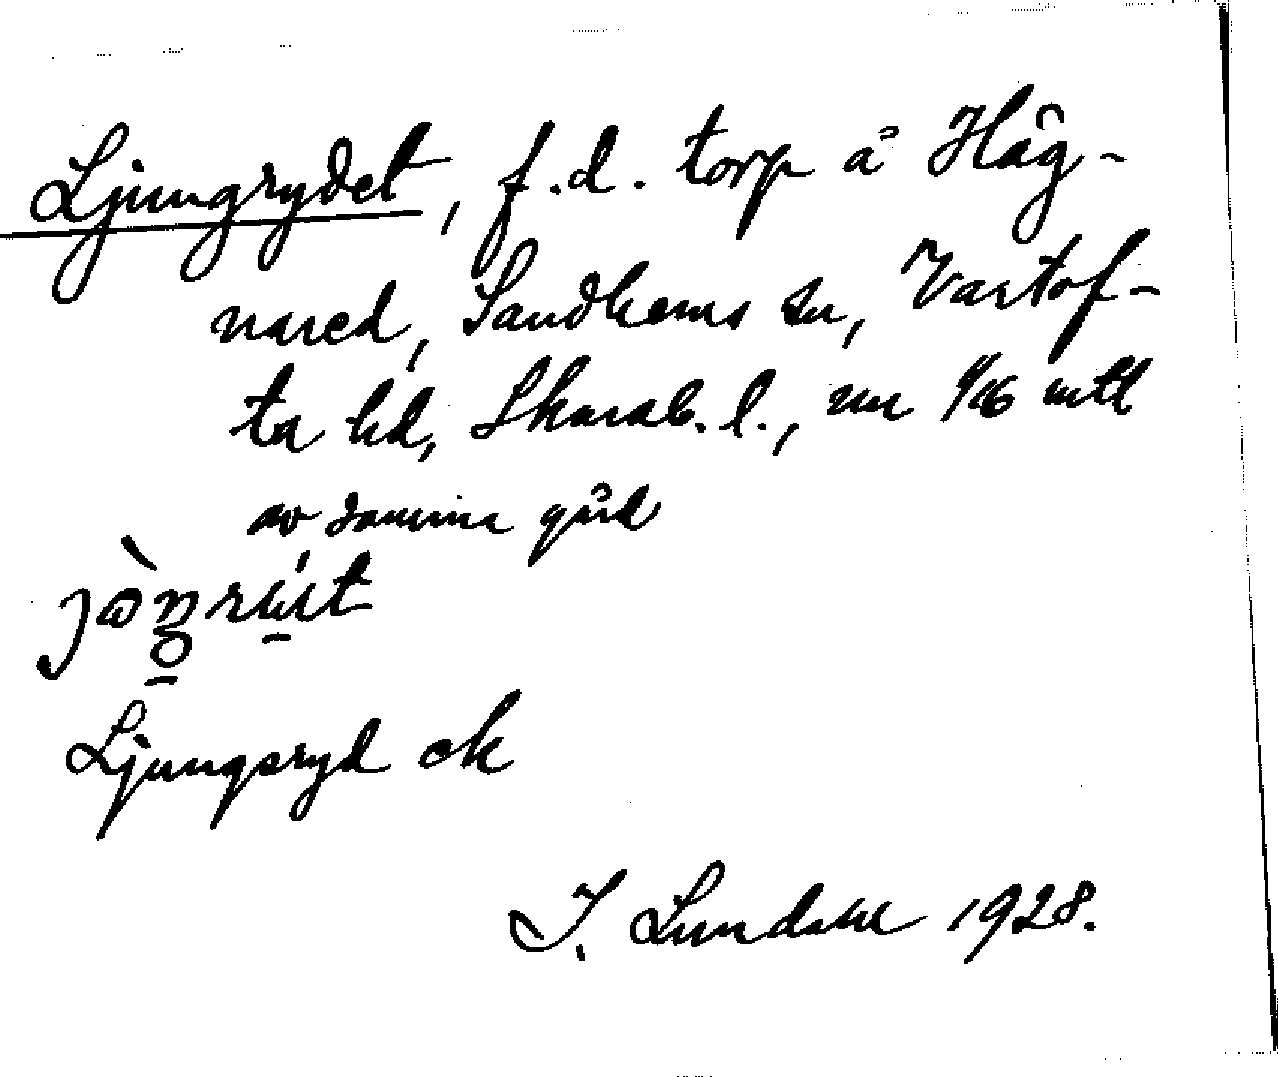 Ljungrydet, f.d. torp å Håg-
nared, Sandhems sn, Vartof-
ta hd, Skarab. l., nu 1/16 mtl
av samma gård
Ljungsryd ek
I. Lundahl 1928.